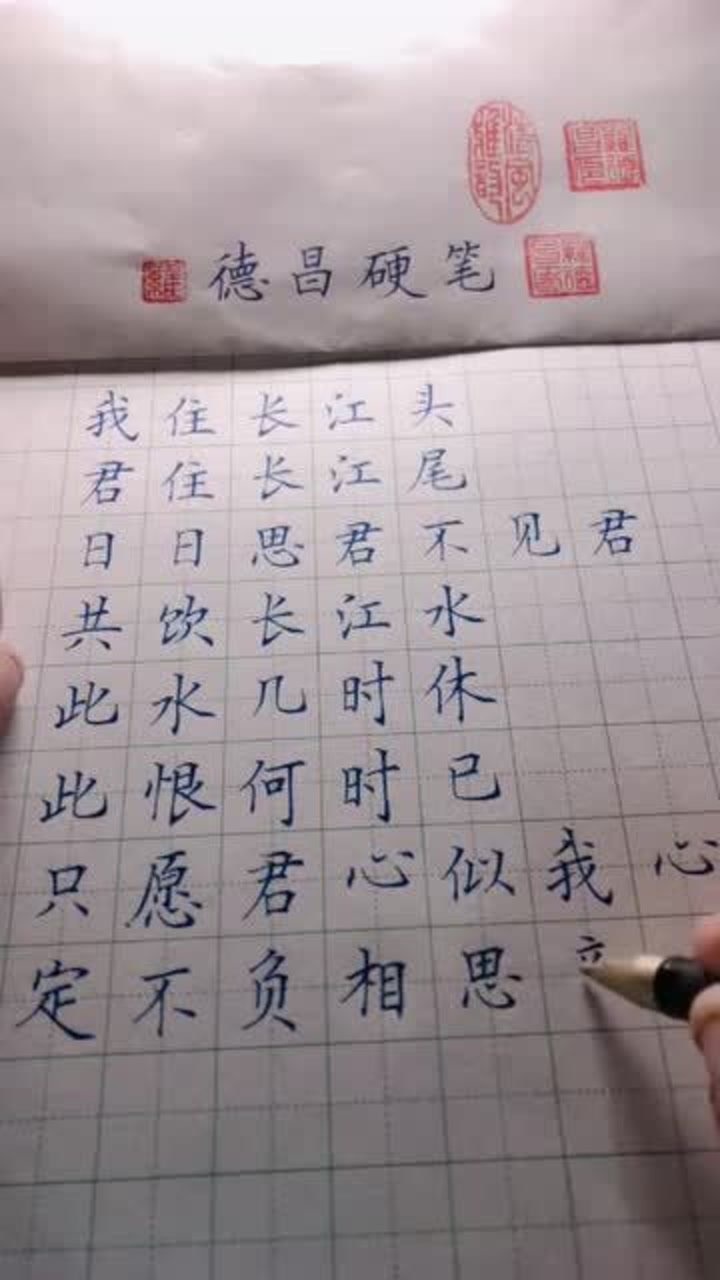 德昌硬笔
我住长江头
君住长江尾
日日思君不见君
共饮长江水
此水几时休
此恨何时已
只愿君心似我心
定不负相思